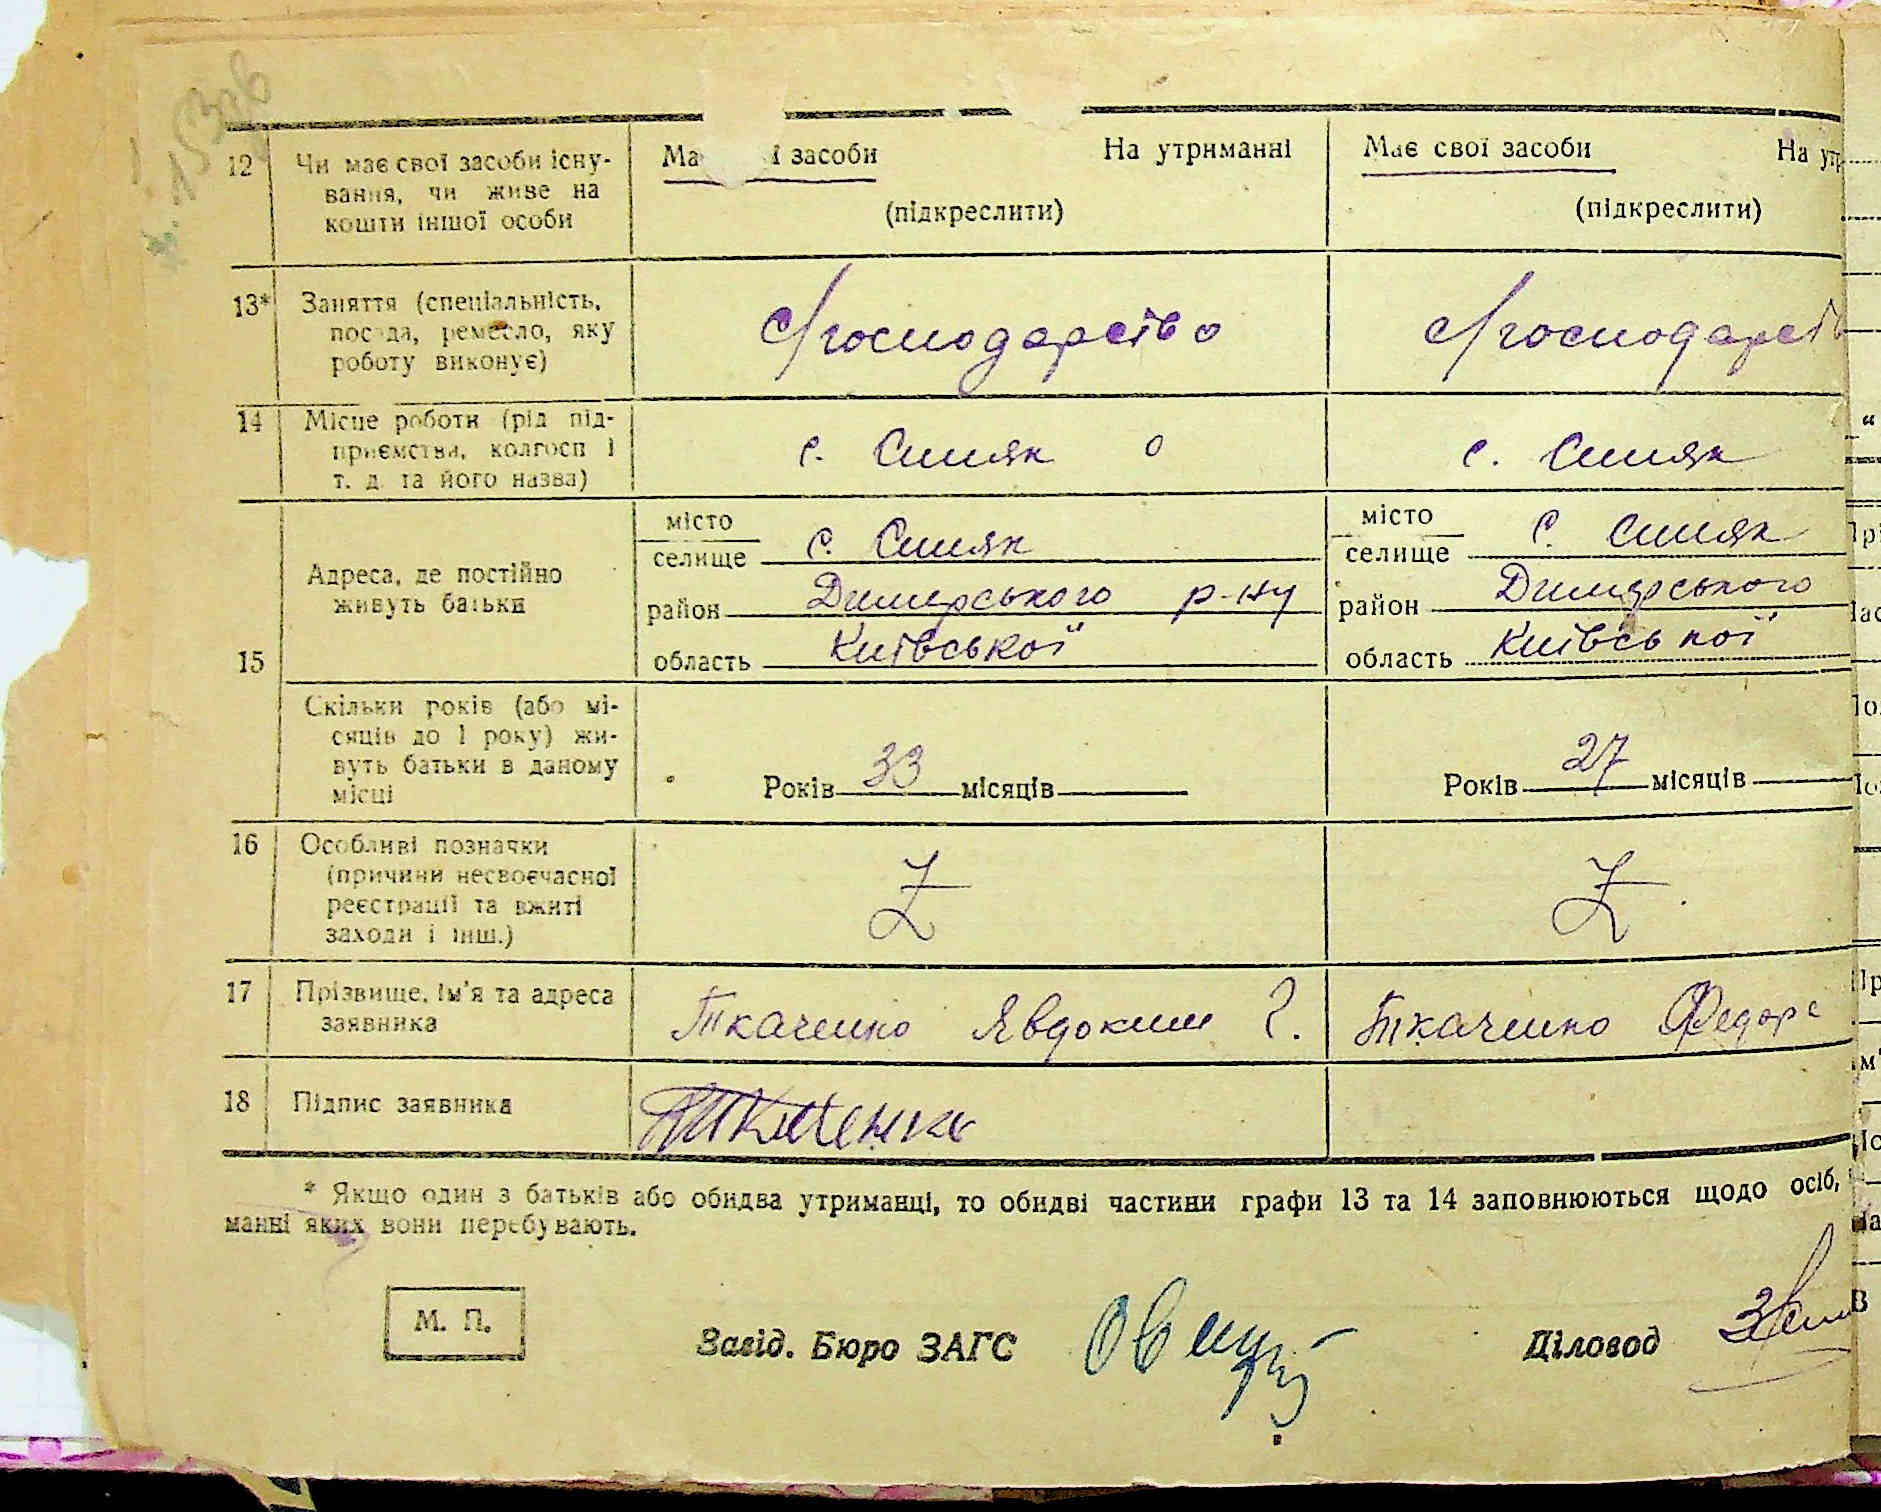 12 Чи має свої засоби існу-
вання, чи живе на
кошти іншої особи
Ма і засоби На утриманні
(підкреслити)
Має свої засоби На утр
(підкреслити)
13* Заняття (спеціальність,
посада, ремесло, яку
роботу виконує)
с/господарство
с/господарств
14 Місце роботи (рід під-
приємства, колгосп і
т. д. та його назва)
с. Синяк о
с. Синяк
15 Адреса, де постійно
живуть батьки
місто
селище с. Синяк
район Димерського р-ну
область Київської
місто
селище с. Синяк
район Димерського
область Київської
Скільки років (або мі-
сяців до 1 року) жи-
вуть батьки в даному
місці
Років 33 місяців
Років 27 місяців
16 Особливі позначки
(причини несвоєчасної
реєстрації та вжиті
заходи і інш.)
Z
Z
17 Прізвище, ім'я та адреса
заявника
Ткаченко Явдоким Г.
Ткаченко Федора
18 Підпис заявника
Ткаченко
* Якщо один з батьків або обидва утриманці, то обидві частини графи 13 та 14 заповнюються щодо осіб,
манні яких вони перебувають.
М. П.
Завід. Бюро ЗАГС
Діловод